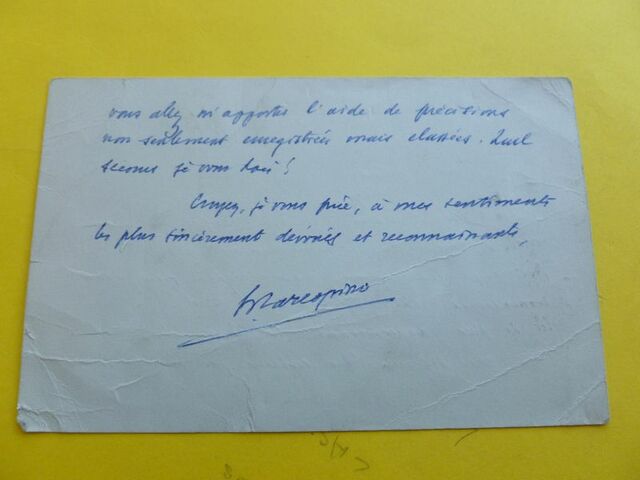 vous allez m'apporter l'aide de précisions
non seulement enregistrées mais classées. Quel
secours je vous dois !
Croyez, je vous prie, à mes sentiments
les plus sincèrement dévoués et reconnaissants,